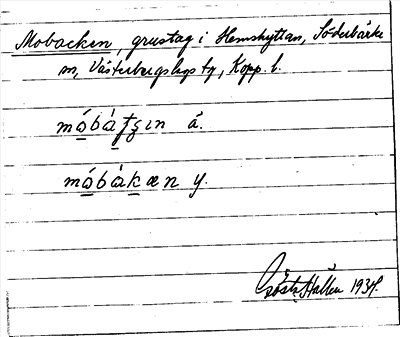 Mobacken, grustag i Hemshyttan, Söderbärke
sn, Västerbergslags tg, Kopp. l.
mo̲bátʂın ä.
mo̲bákæn y.
Gösta Hallén 1934.